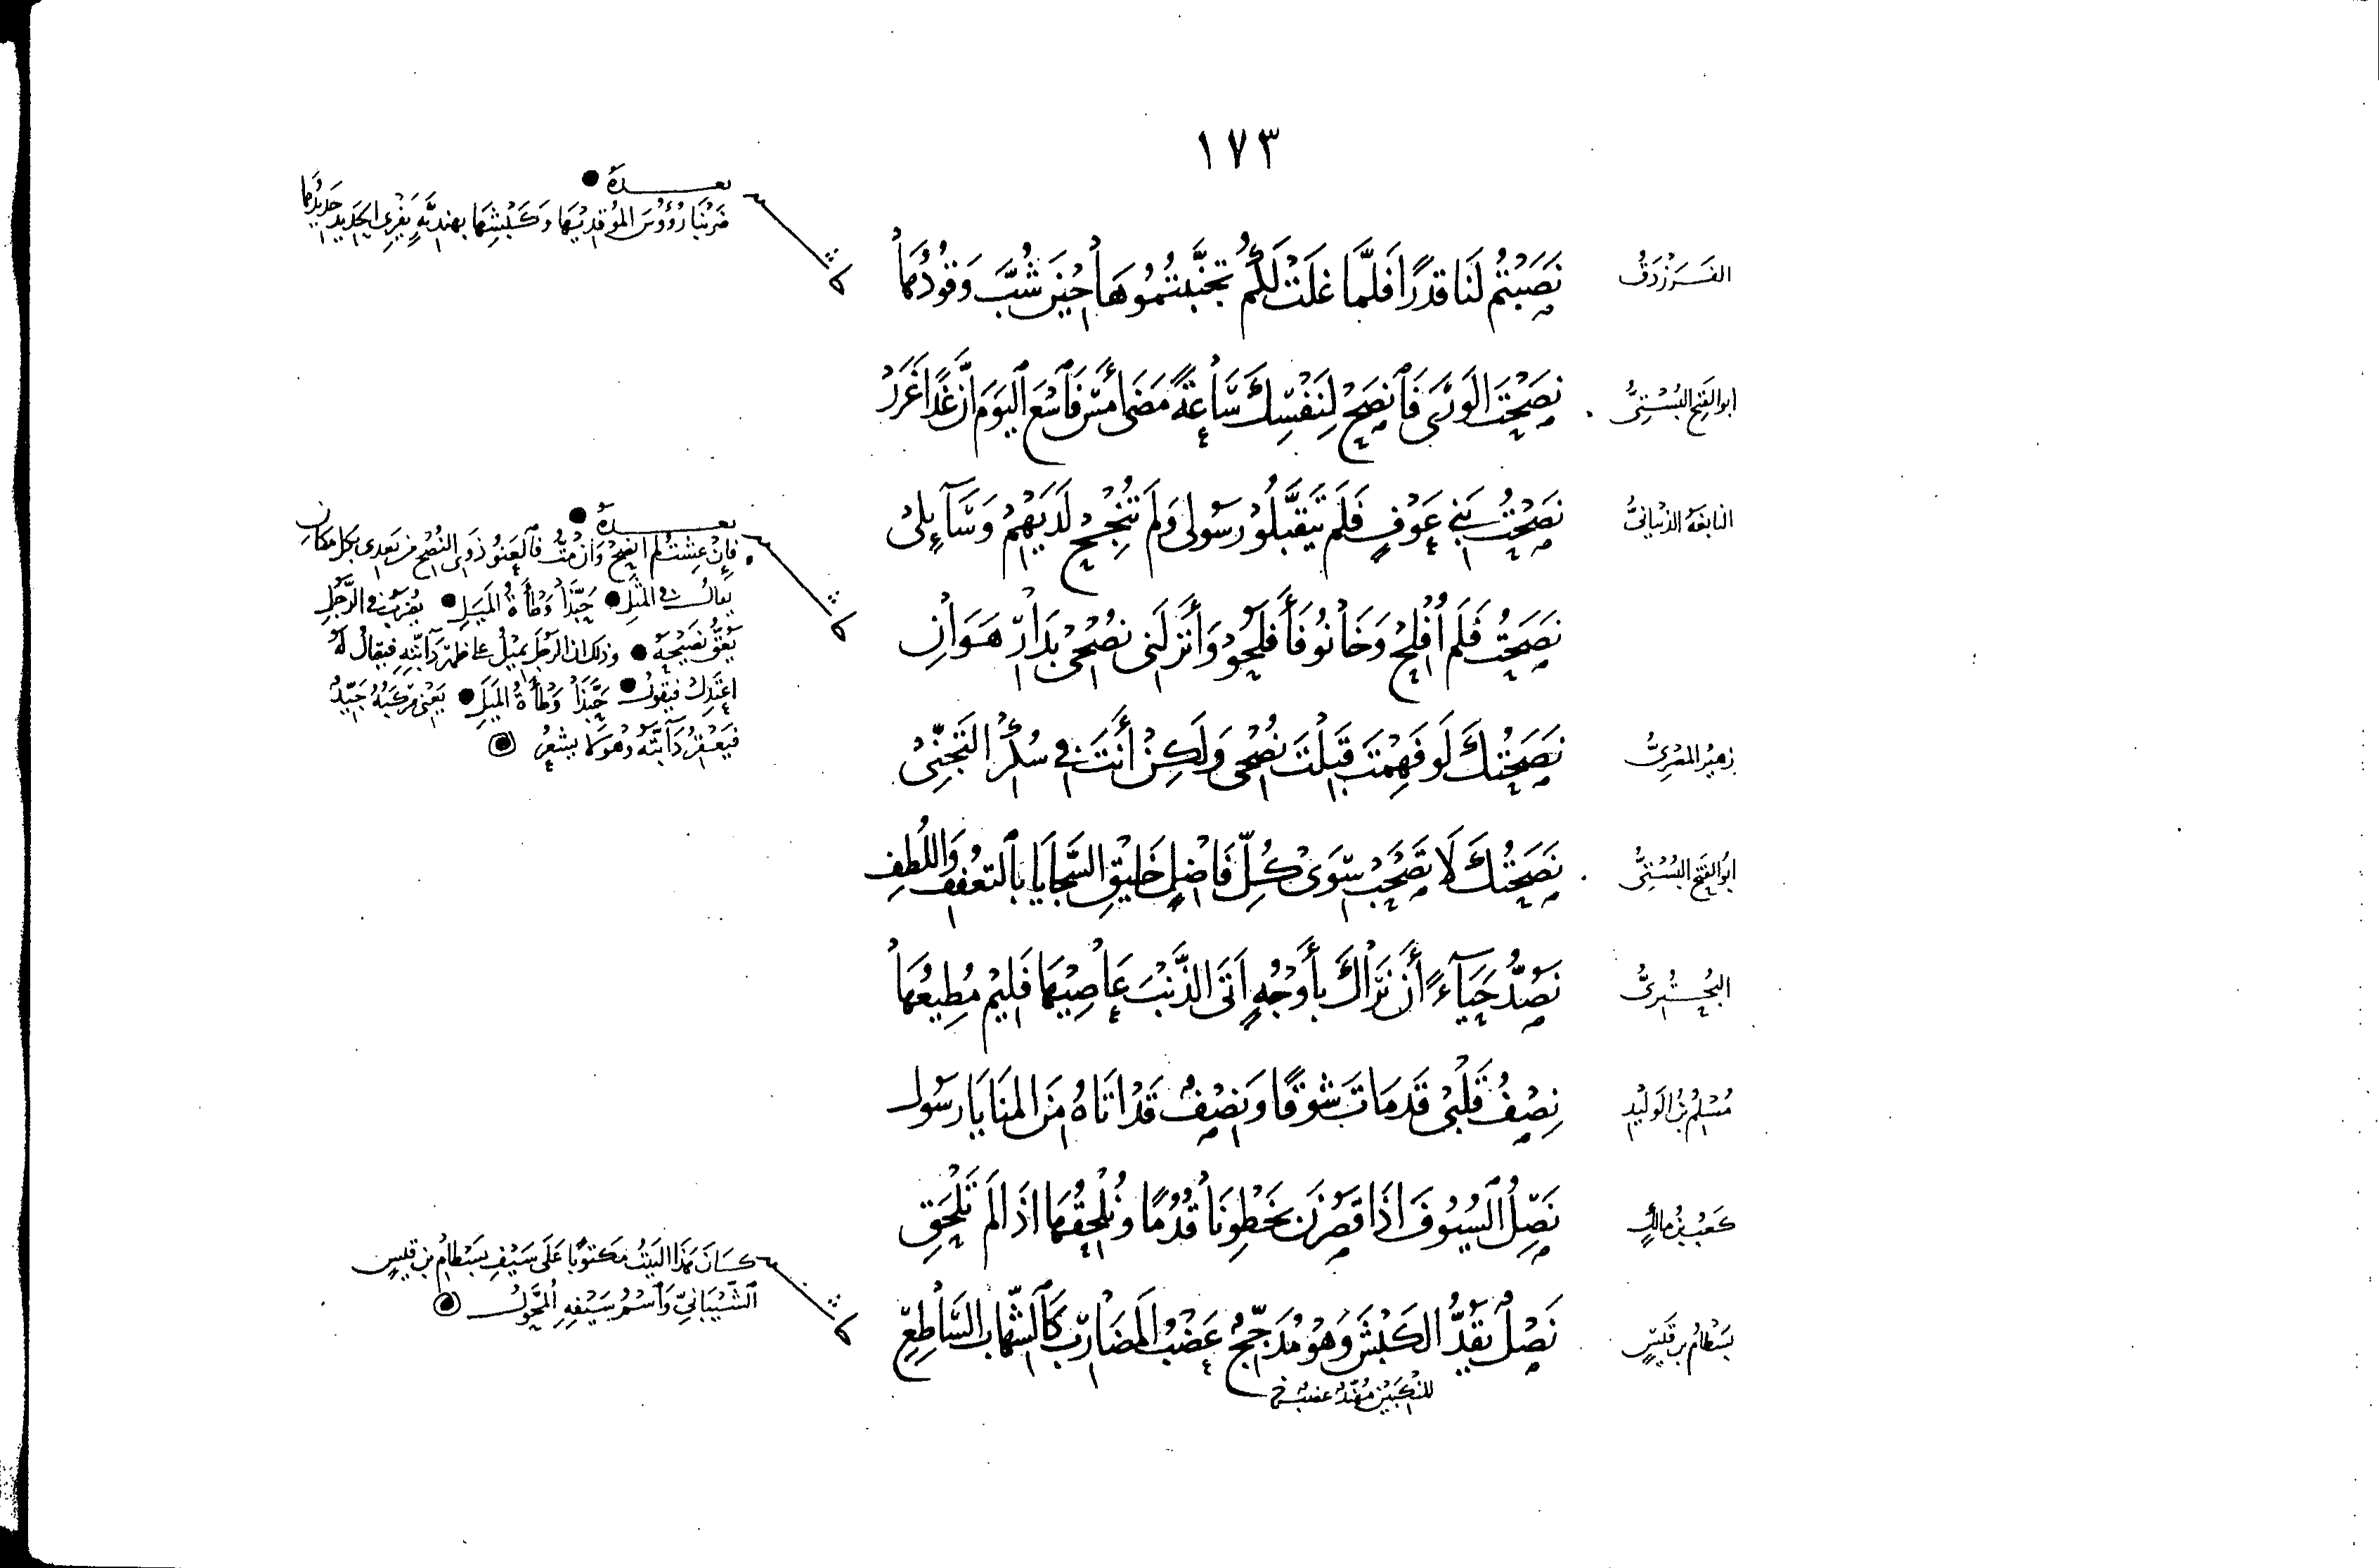 ١٧٣
الفَرَزْدَقُ
نَصَبْتُمْ لَنَا قِدْرًا فَلَمَّا غَلَتْ لَكُمْ تَجَنَّبْتُمُوهَا حِيْنَ شُبَّ وَقُوْدُهَا
بعده
ضَرَبْنَا رُؤُوْسَ المُوْقِدِيْهَا وَكَبْشِهَا بِهِنْدِيَّةٍ يَفْرِي الحَدِيدَ حَدِيْدُهَا
ابو الفَتْحِ البُسْتِيُّ
نَصَحْتَ الوَرَى فَانْصَحْ لِنَفْسِكَ سَاعَةً مَضَى أَمْسِ فَاسْعَ اليَوْمَ اِنَّ غَدًا غَرَرُ
النابغه الذبيانيُّ
نَصَحْتُ بَنِي عَوْفٍ فَلَم يَتَقَبَّلُوْا رَسُولِي وَلَم تُنْجِحْ لَدَيْهِمْ وَسَآئِلِي
نَصَحْتُ فَلَم أُفْلِحْ وَخَانُوْا فَأَفْلَحُوْا وَأَنْزَلَنِي نُصْحِي بِدَارِ هَوَانِ
بعده
فَإِنْ عِشْتُ لم انْصَحْ وَاِنْ مُتُّ فَالعَنُوْا ذَوِي النُصْحِ مِن بَعْدِي بِكُلِّ مَكَانِ
يقال في المثل حَبَّذَا وَطْأَةُ المَيَلِ يُضْرَبُ فِي الرَّجُلِ
يَعُقُّ نَصِيْحَهُ وذلك ان الرَجُلَ يَمِيْلُ على ظَهْرِ دَآبَّتِهِ فيقالُ لَهُ
اعْتَدِلْ فيقولُ حَبَّذَا وَطْأَةُ المَيَلِ يَعْنِي مَرْكَبُهُ جَيِّدٌ
فَيَعْقِرُ دَآبَّتَهُ وَهُوَ لَا يَشْعُرُ
زهير المصريُّ
نَصَحْتُكَ لَو فَهِمْتَ قَبِلْتَ نُصْحِي وَلَكِنْ أَنْتَ فِي سُكْرِ التَجَنِّي
ابُو الفَتْحِ البُسْتِيُّ
نَصَحْتُكَ لَا تَصْحَبْ سِوَى كُلِّ فَاضِلٍ خَلِيْقِ السَّجَايَا بِالتَعَفُّفِ وَاللُطْفِ
البُحْتُرِيُّ
نَصُدُّ حَيَآءً أَنْ نَرَاكَ بِأَوْجُهٍ اَتَى الذَّنْبَ عَاصِيْهَا فَلِيْمَ مُطِيْعُهَا
مُسْلِمُ بنُ الوَلِيْدِ
نِصْفُ قَلْبِيْ قَد مَاتَ شَوْقًا وَنِصْفٌ قَدْ اَتَاهُ مِنَ المَنَايَا رَسُولُ
كَعْبُ بنُ مالكٍ
نَصِلُ السُيُوفَ اذَا قَصُرْنَ بِخَطْوِنَا قُدُمًا وَنُلْحِقُهَا اذَا لَم تَلْحَقِ
بَسْطَامُ بن قَيْسٍ
نَصْلٌ يَقُدُّ الكَبْشَ وَهُوَ مُدَجَّجٌ عَضْبُ المَضَارِبِ كَالشِّهَابِ السَّاطِعِ
كَانَ هَذَا البَيْتُ مَكتوبًا عَلَى سَيْفِ بَسْطَامِ بن قيسٍ
الشَّيْبَانِيِّ وَاسْمُ سَيْفِهِ